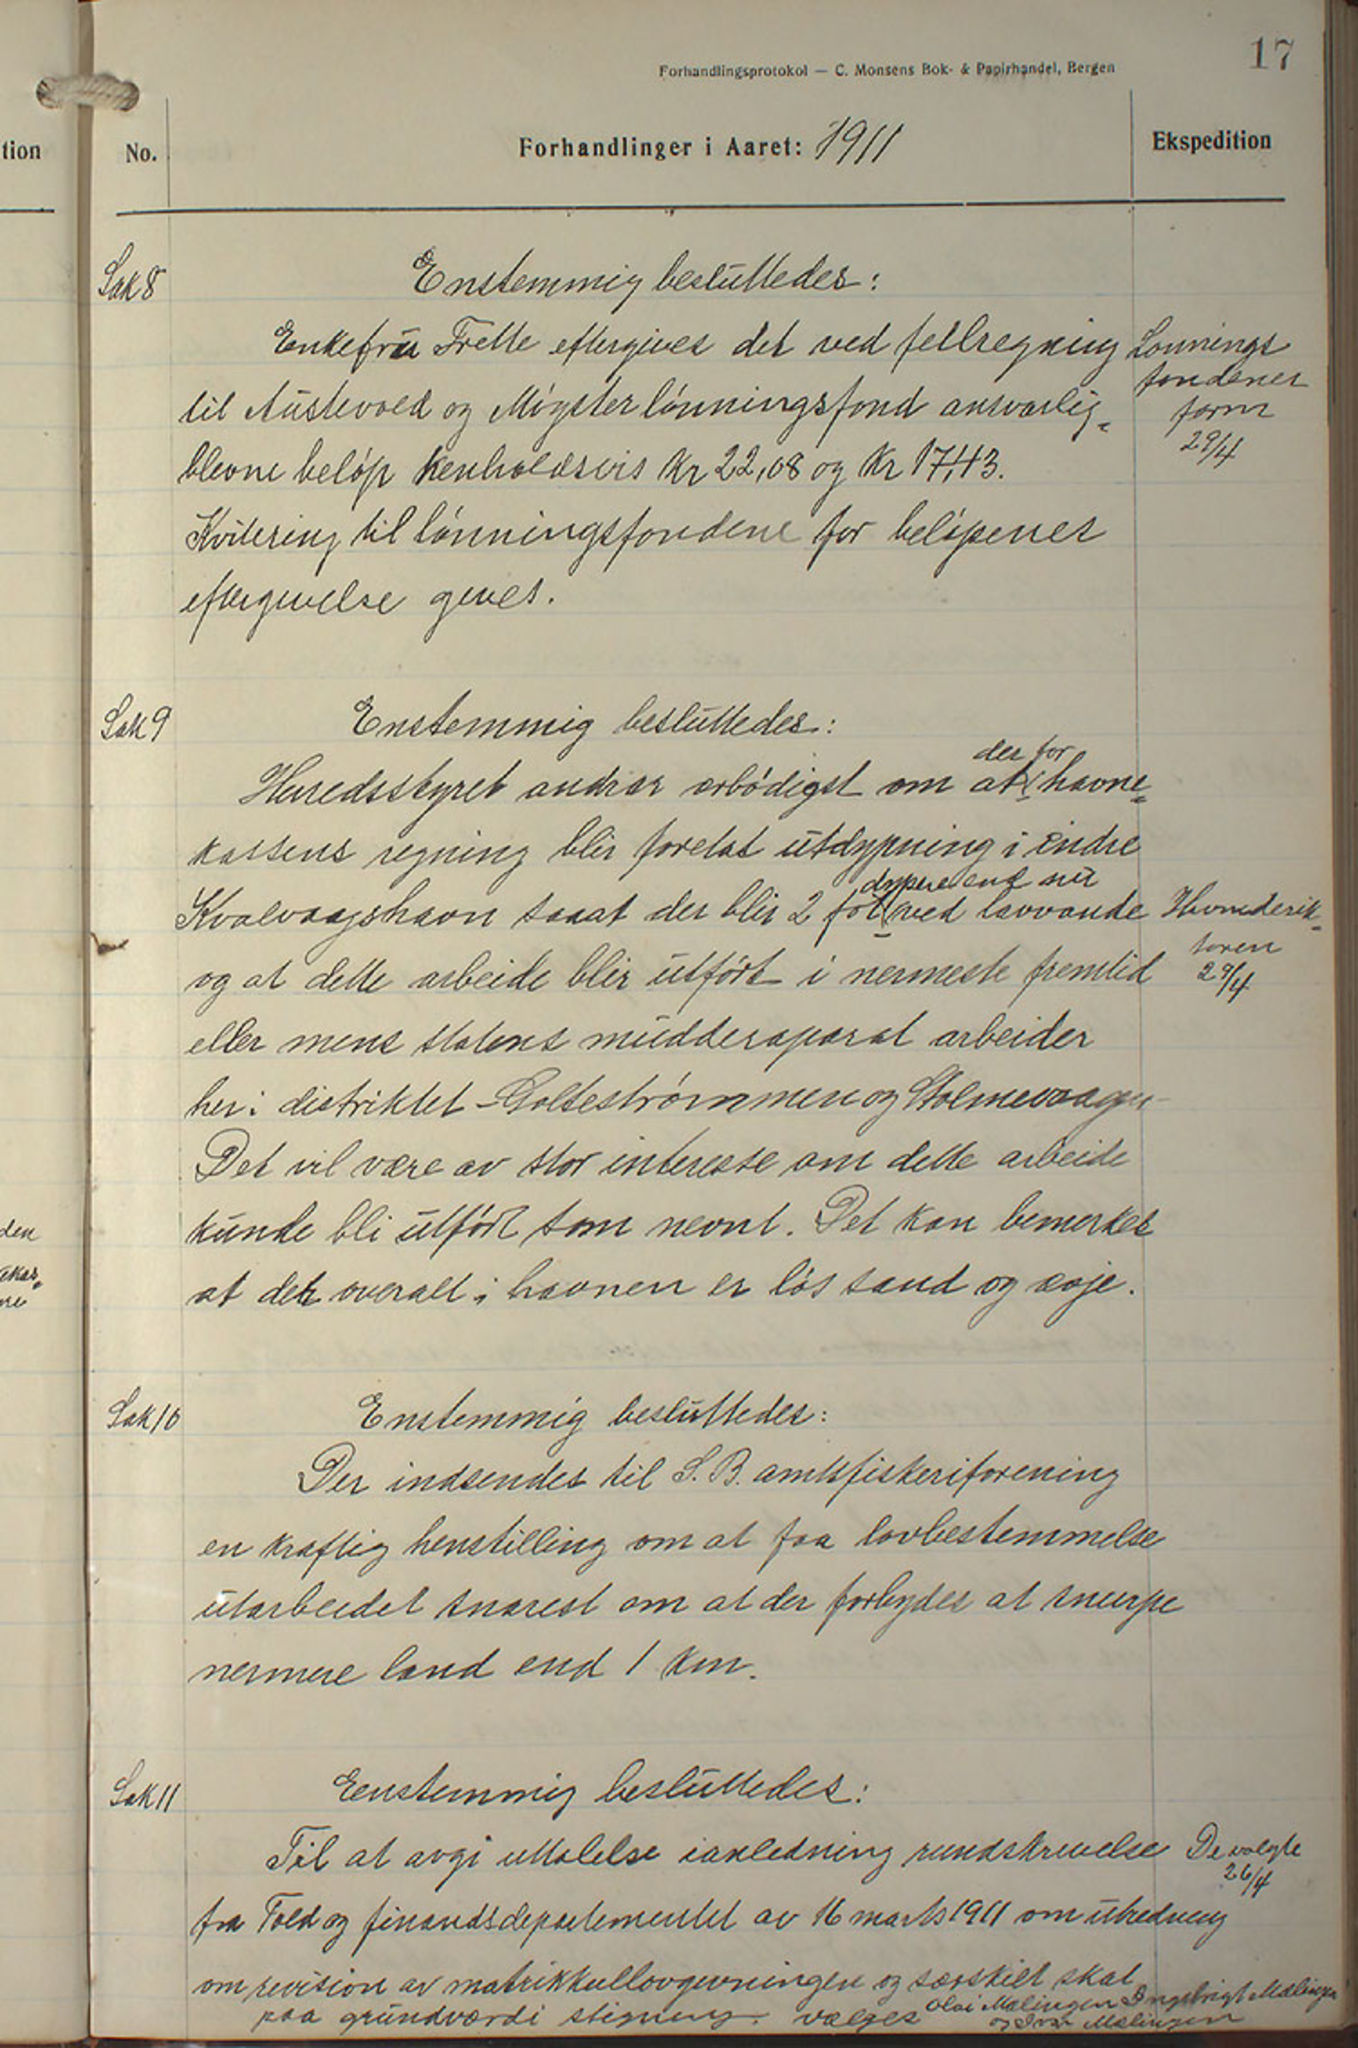 Forhandlingsprotokol — C. Monsens Bok- & Papirhandel, Bergen
17
tion
No.
Forhandlinger i Aaret: 1911
Ekspedition
Sak 8
Enstemmig besluttedes:
Enkefru Frette eftergives det ved feilregning
til Austevold og Møgster lønningsfond ansvarlig=
blevne beløp henholdsvis Kr 22,08 og Kr 17,43.
Kvitering til lønningsfondene for beløpenes
eftergivelse gives.
Lønnings
fondenes
form
29/4
Sak 9
Enstemmig besluttedes:
der for
Herredsstyret andrar ærbødigst om at havne=
kassens regning blir foretat utdypning i indre
dypere end nu
Kvalvaagshavn saaat der blir 2 fot ved lavvande
og at dette arbeide blir utført i nermeste fremtid
eller mens statens mudderaparat arbeider
her i distriktet - Goltestrømmen og Stolmevaagen -
Det vil være av stor interesse om dette arbeide
kunde bli utført som nevnt. Det kan bemerkes
at der overalt i havnen er løs sand og æje.
Havnedirek=
tøren
29/4
den
ekas=
Sak 10
Enstemmig besluttedes:
Der indsendes til S. B. amtsfiskeriforening
en kraftig henstilling om at faa lovbestemmelse
utarbeidet snarest om at der forbydes at snurpe
nermere land end 1 km.
Sak 11
Eenstemmig besluttedes:
Til at avgi uttalelse ianledning rundskrivelse
fra Told og finandsdepartementet av 16 marts 1911 om utredning
om revision av matrikkullovgivningen og særskilt skat
paa grundværdi stigning. vælges Olai Mælingen Ingebrigt Mælingen
og Ivar Mælingen
De valgte
26/4